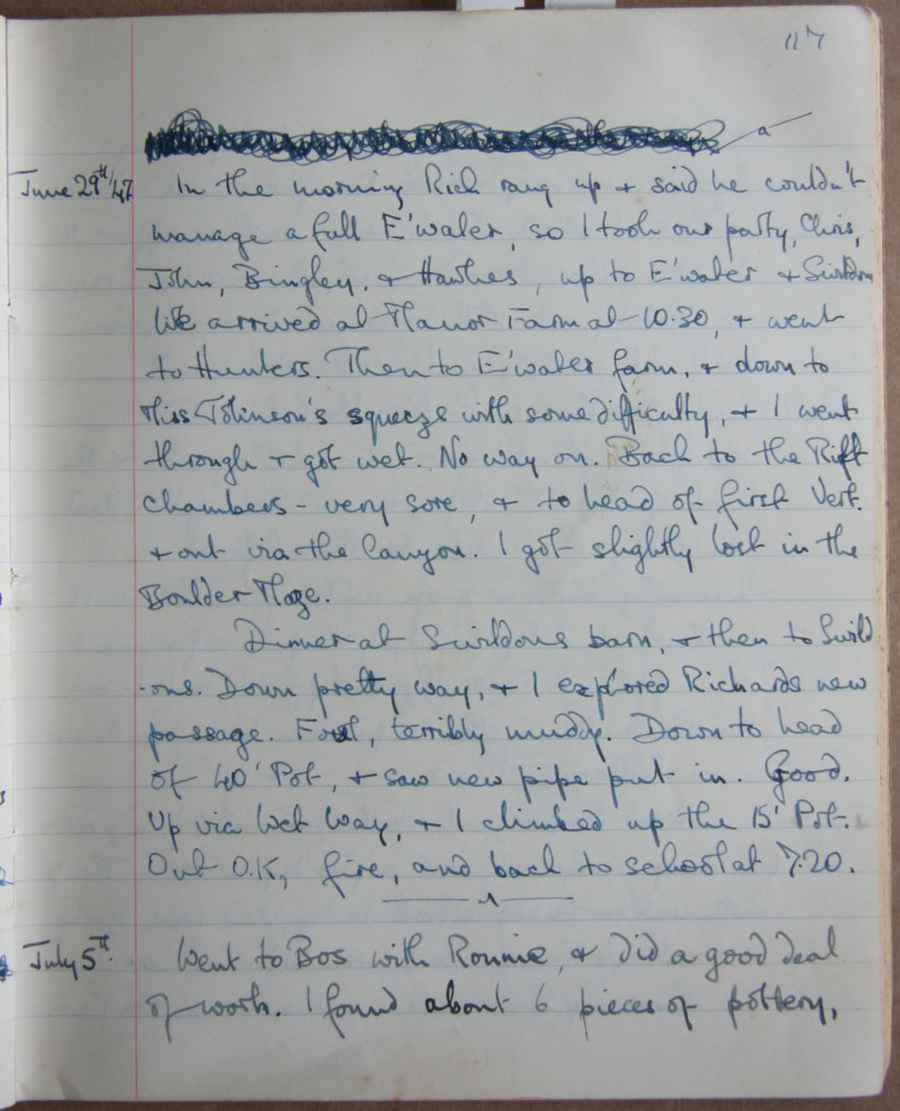 117
a
June 29th/47 In the morning Rich rang up + said he couldn't
manage a full E'water, so I took our party, Chris,
John, Bingley, + Hawkes, up to E'water + Swildon
We arrived at Manor Farm at 10.30, + went
to Hunters. Then to E'water farm, + down to
Miss Johnson's squeeze with some difficulty, + I went
through + got wet. No way on. Back to the Rift
Chambers - very sore, + to head of first Vert.
+ out via the Canyon. I got slightly lost in the
Boulder Maze.
Dinner at Swildons barn, + then to Swild
-ons. Down pretty way, + I explored Richards new
passage. Foul, terribly muddy. Down to head
of 40' Pot, + saw new pipe put in. Good.
Up via Wet Way, + I climbed up the 15' Pot.
Out O.K, fire, and back to school at 7.20.
July 5th. Went to Bos with Ronnie, + did a good deal
of work. I found about 6 pieces of pottery,